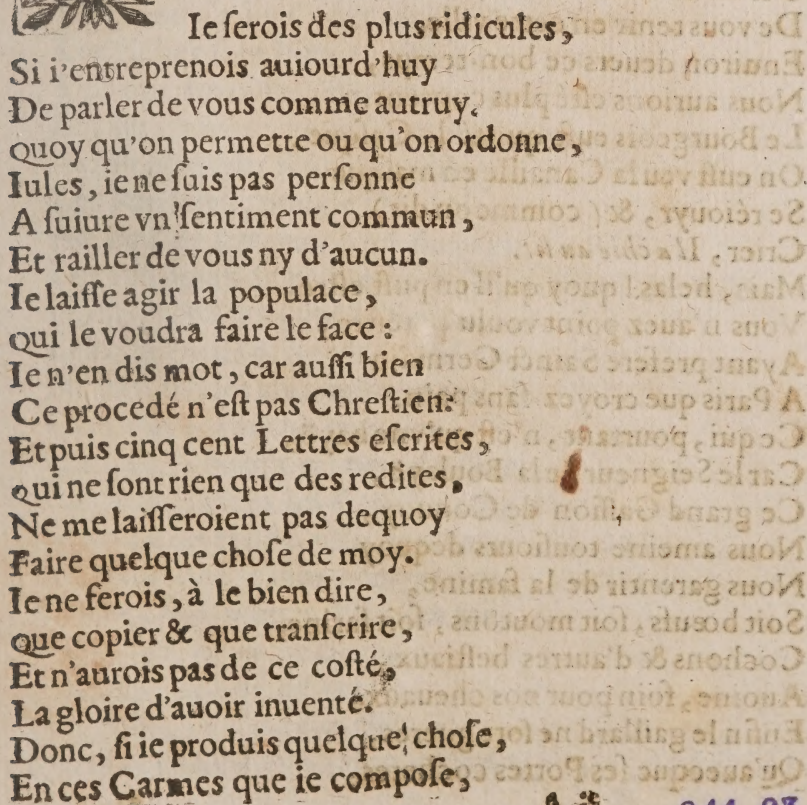 Ie ſerois des plus ridicules,
Si i'entreprenois auiourd'huy
De parler de vous comme autruy.
Quoy qu'on permette ou qu'on ordonne,
Iules, ie ne ſuis pas perſonne
A ſuiure vn ſentiment commun,
Et railler de vous ny d'aucun.
Ie laiſſe agir la populace,
Qui le voudra faire le face :
Ie n'en dis mot, car auſſi bien
Ce procedé n'eſt pas Chreſtien:
Et puis cinq cent Lettres eſcrites,
Qui ne ſont rien que des redites,
Ne me laiſſeroient pas dequoy
Faire quelque choſe de moy.
Ie ne ferois, à le bien dire,
Que copier & que tranſcrire,
Et n'aurois pas de ce coſté,
La gloire d'auoir inuenté.
Donc, ſi ie produis quelque choſe,
En ces Carmes que ie compoſe,